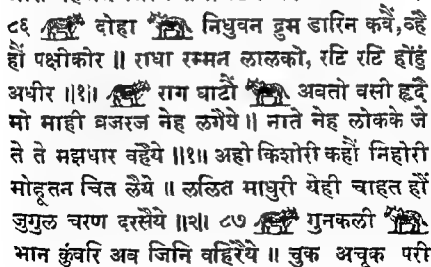 ८६ दोहा निधुवन द्रुम डारिन कवैं, व्है
हौं पक्षीकोर ॥ राधा रम्मन लालकों, रटि रटि होंहुं
अधीर ॥१॥ राग घाटौ अवतो वसी हृदै
मो माही व्रजरज नेह लगैये ॥ नाते नेह लोकके जे
ते ते मझधार वहैये ॥१॥ अहो किशोरी कहौं निहोरी
मोद्रूतन चित लैये ॥ ललित माधुरी येही चाहत हौं
जुगुल चरण दरसैये ॥२॥ ८७ गुनकली
भान कुंवरि अव जिनि वहिरैये ॥ चुक अचूक परी